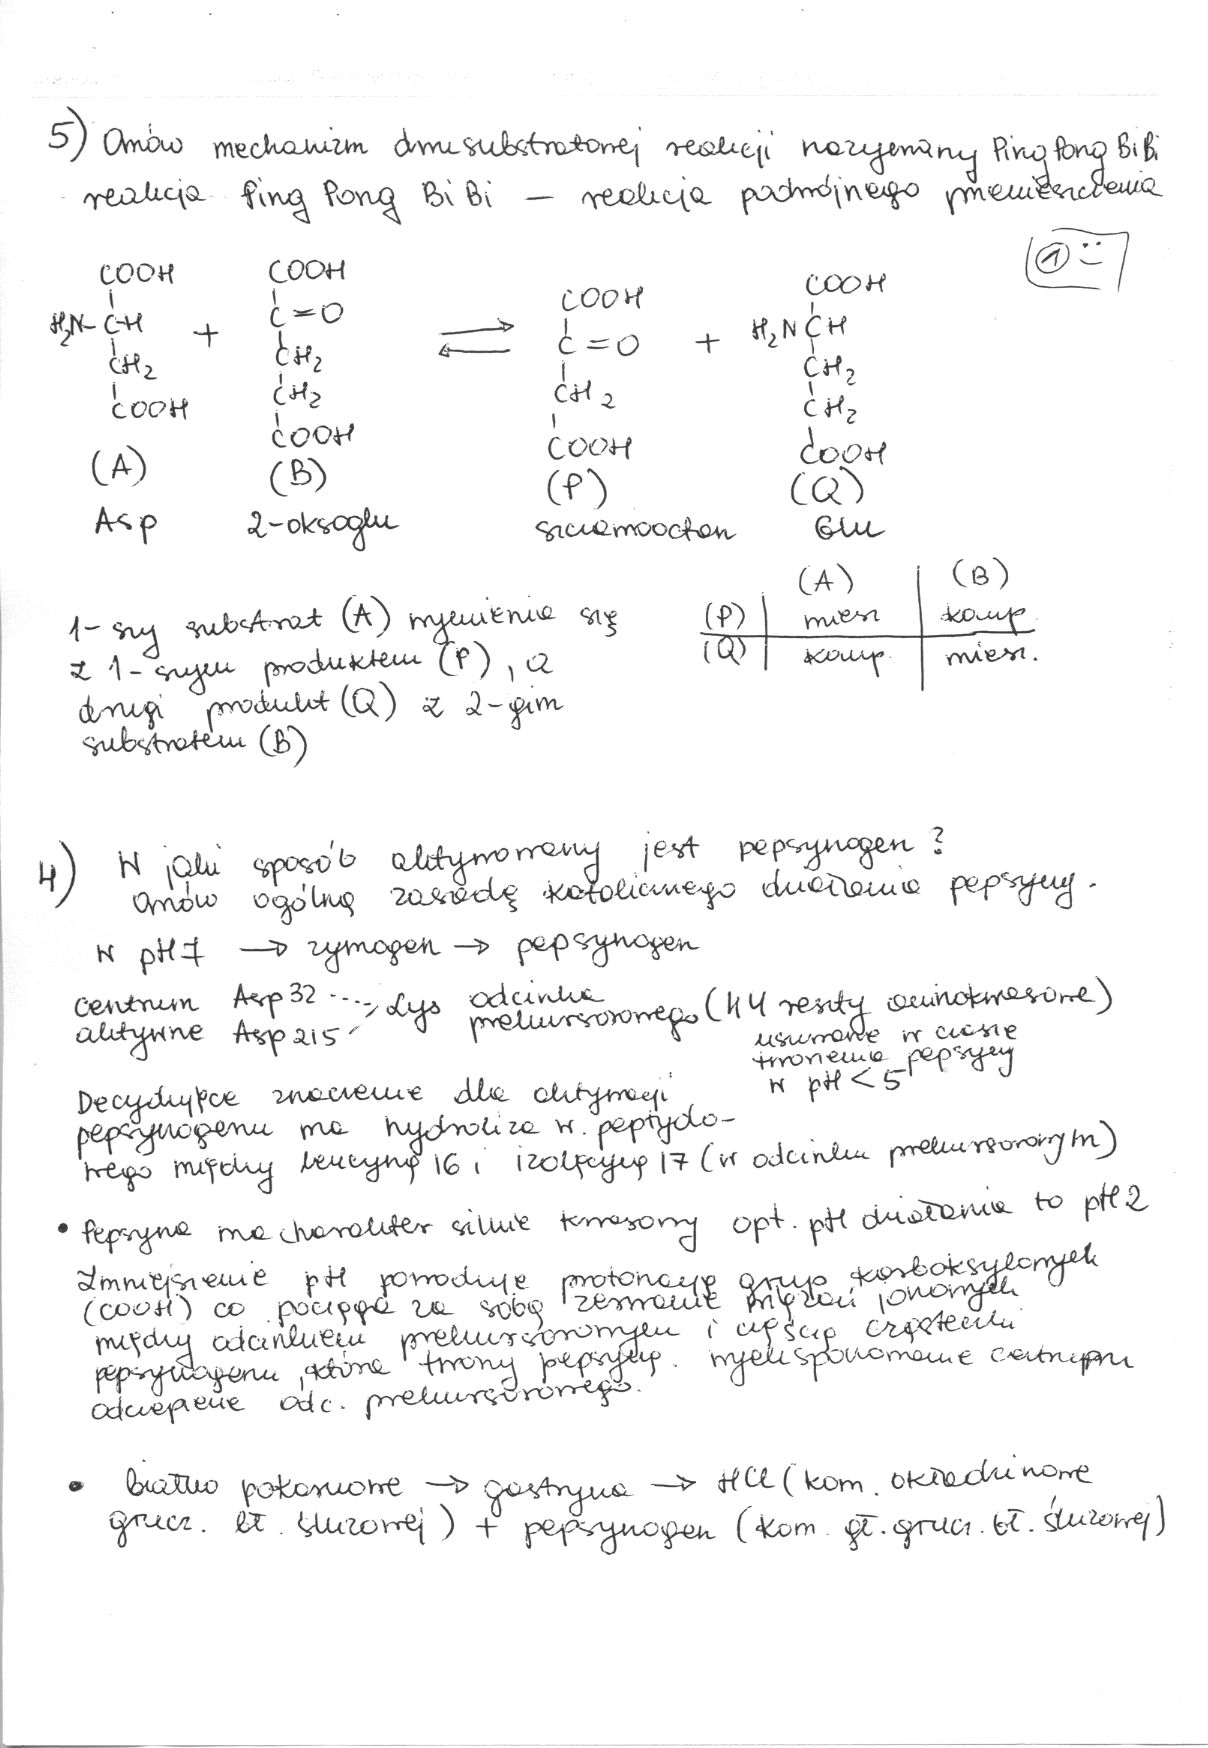 5) Omów mechanizm dwusubstratowej reakcji nazywany Ping Pong BiBi
reakcja Ping Pong BiBi – reakcja podwójnego przemieszczenia
① :)
COOH COOH COOH COOH
H₂N-C-H + C=O ⇌ C=O + H₂N CH
CH₂ CH₂ CH₂ CH₂
COOH CH₂ COOH CH₂
COOH COOH
(A) (B) (P) (Q)
Asp 2-oksoglu szczawiooctan Glu
(A) (B)
(P) miesz komp.
(Q) komp. miesz.
1-szy substrat (A) wymienia się
z 1-szym produktem (P), a
drugi produkt (Q) z 2-gim
substratem (B)
4) W jaki sposób aktywowany jest pepsynogen?
Omów ogólną zasadę katalicznego działania pepsyny.
w pH 7 → zymogen → pepsynogen
centrum Asp 32 ..... Lys odcinka
aktywne Asp 215 prekursorowego (44 reszty aminokwasowe)
usuwane w czasie
tworzenia pepsyny
w pH < 5
Decydujące znaczenie dla aktywacji
pepsynogenu ma hydroliza w. peptydo-
wego między leucyną 16 i izolącyną 17 (w odcinku prekursorowym)
• Pepsyna ma charakter silnie kwasowy opt. pH działania to pH 2
Zmniejszenie pH powoduje protonację grup karboksylowych
(COOH) co pociąga za sobą zerwanie wiązań jonowych
między odcinkiem prekursorowym i częścią cząsteczki
pepsynogenu, która tworzy pepsynę. wyeksponowanie centrum
odczepienie odc. prekursorowego.
• białko pokarmowe → gastryna → HCl (kom. okładzinowe
grucz. bł. śluzowej) + pepsynogen (kom. gł. grucz. bł. śluzowej)